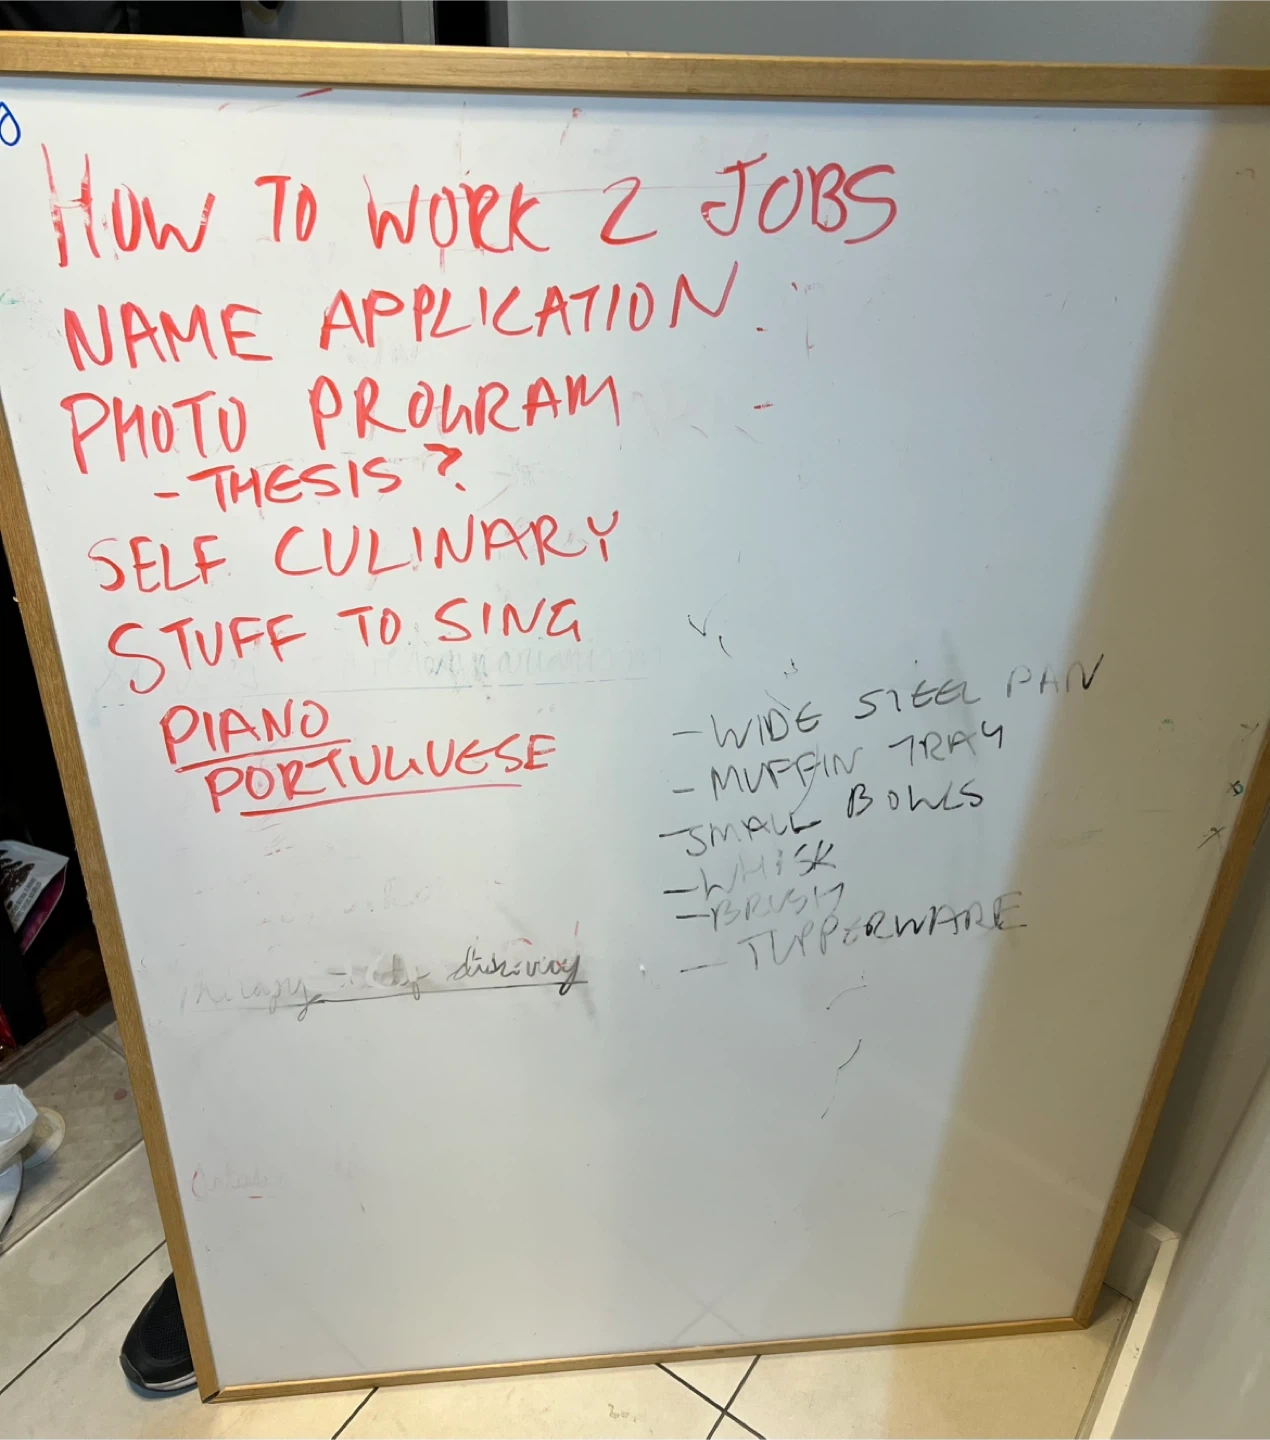 HOW TO WORK 2 JOBS
NAME APPLICATION
PHOTO PROGRAM
- THESIS?
SELF CULINARY
STUFF TO SING
PIANO
PORTUGUESE
- WIDE STEEL PAN
- MUFFIN TRAY
- SMALL BOWLS
- WHISK
- BRUSH
- TUPPERWARE
therapy